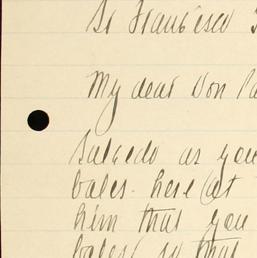 Sr Francisco
My dear Don
Salcedo as you
bales. here (at
him that you
bales) so that